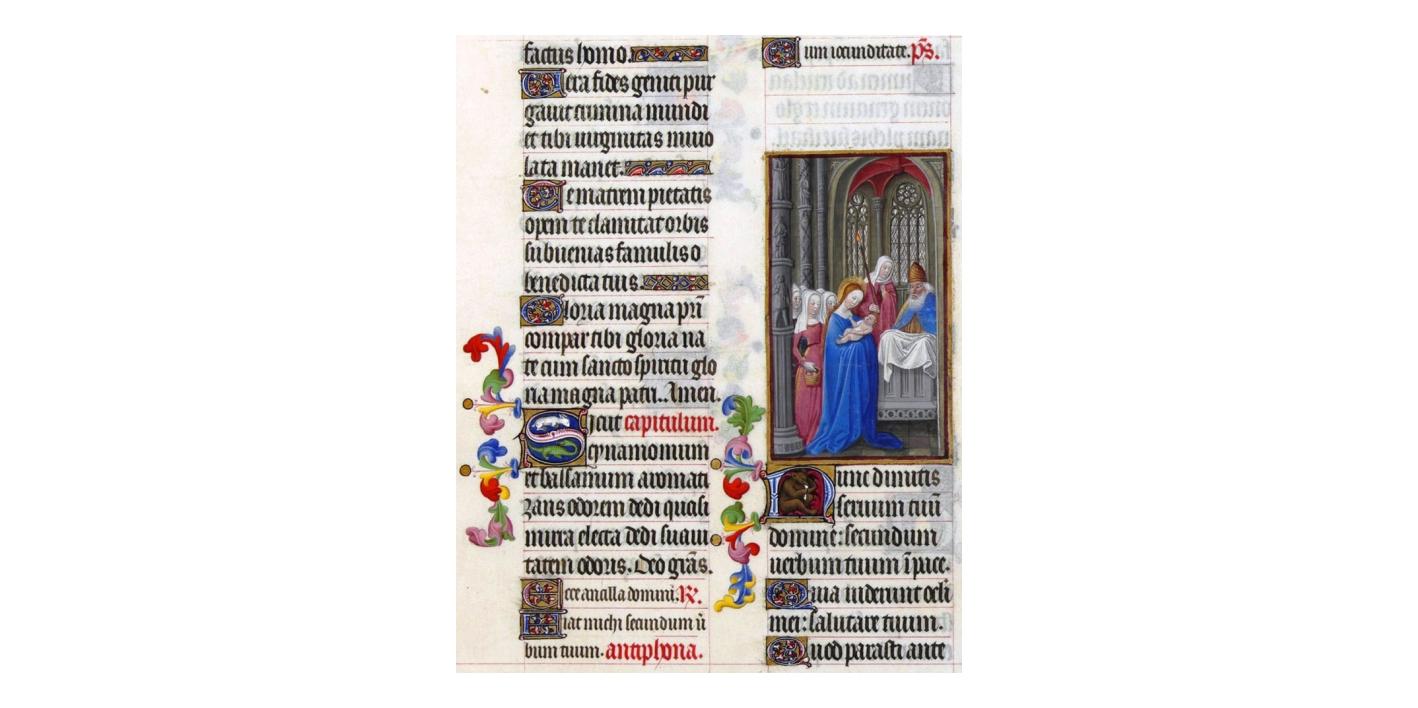 factus homo.
Vera fides geniti pur
gauit crimina mundi
et tibi uirginitas inuio
lata manet.
Te matrem pietatis
opem te clamitat orbis
subuenias famulis o
benedicta tuis.
Gloria magna pr̄i
compar tibi gloria na
te cum sancto spiritu glo
ria magna patri. Amen.
Sicut capitulum.
cynamomum
et balsamum aromati
zans odorem dedi quasi
mirra electa dedi suaui
tatem odoris. Deo gr̄as.
Ecce ancilla domini. R̷.
Fiat michi secundum u̅
bum tuum. antiphona.
Cum iocunditate. p̄s.
Nunc dimitis
seruum tuū
domine: secundum
uerbum tuum ī pace.
Quia uiderunt oc̄li
mei: salutare tuum.
Quod parasti ante